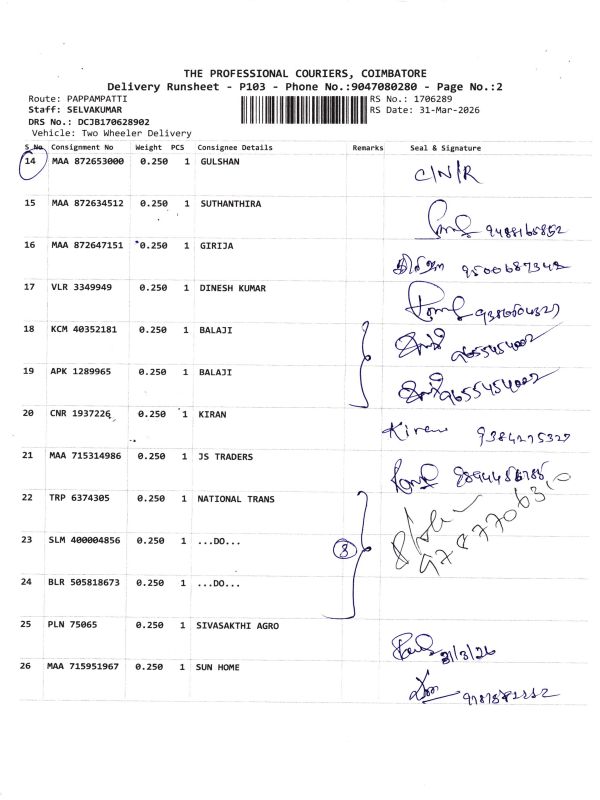 THE PROFESSIONAL COURIERS, COIMBATORE
Delivery Runsheet - P103 - Phone No.:9047080280 - Page No.:2
Route: PAPPAMPATTI RS No.: 1706289
Staff: SELVAKUMAR RS Date: 31-Mar-2026
DRS No.: DCJB170628902
Vehicle: Two Wheeler Delivery
S_No Consignment No Weight PCS Consignee Details Remarks Seal & Signature
14 MAA 872653000 0.250 1 GULSHAN C/N/R
15 MAA 872634512 0.250 1 SUTHANTHIRA 9488165852
16 MAA 872647151 0.250 1 GIRIJA கிரிஜா 9500687342
17 VLR 3349949 0.250 1 DINESH KUMAR
18 KCM 40352181 0.250 1 BALAJI 9655454002
19 APK 1289965 0.250 1 BALAJI 9655454002
20 CNR 1937226 0.250 1 KIRAN Kiran 9384275327
21 MAA 715314986 0.250 1 JS TRADERS
22 TRP 6374305 0.250 1 NATIONAL TRANS
23 SLM 400004856 0.250 1 ...DO... 3
24 BLR 505818673 0.250 1 ...DO...
25 PLN 75065 0.250 1 SIVASAKTHI AGRO 31/3/26
26 MAA 715951967 0.250 1 SUN HOME